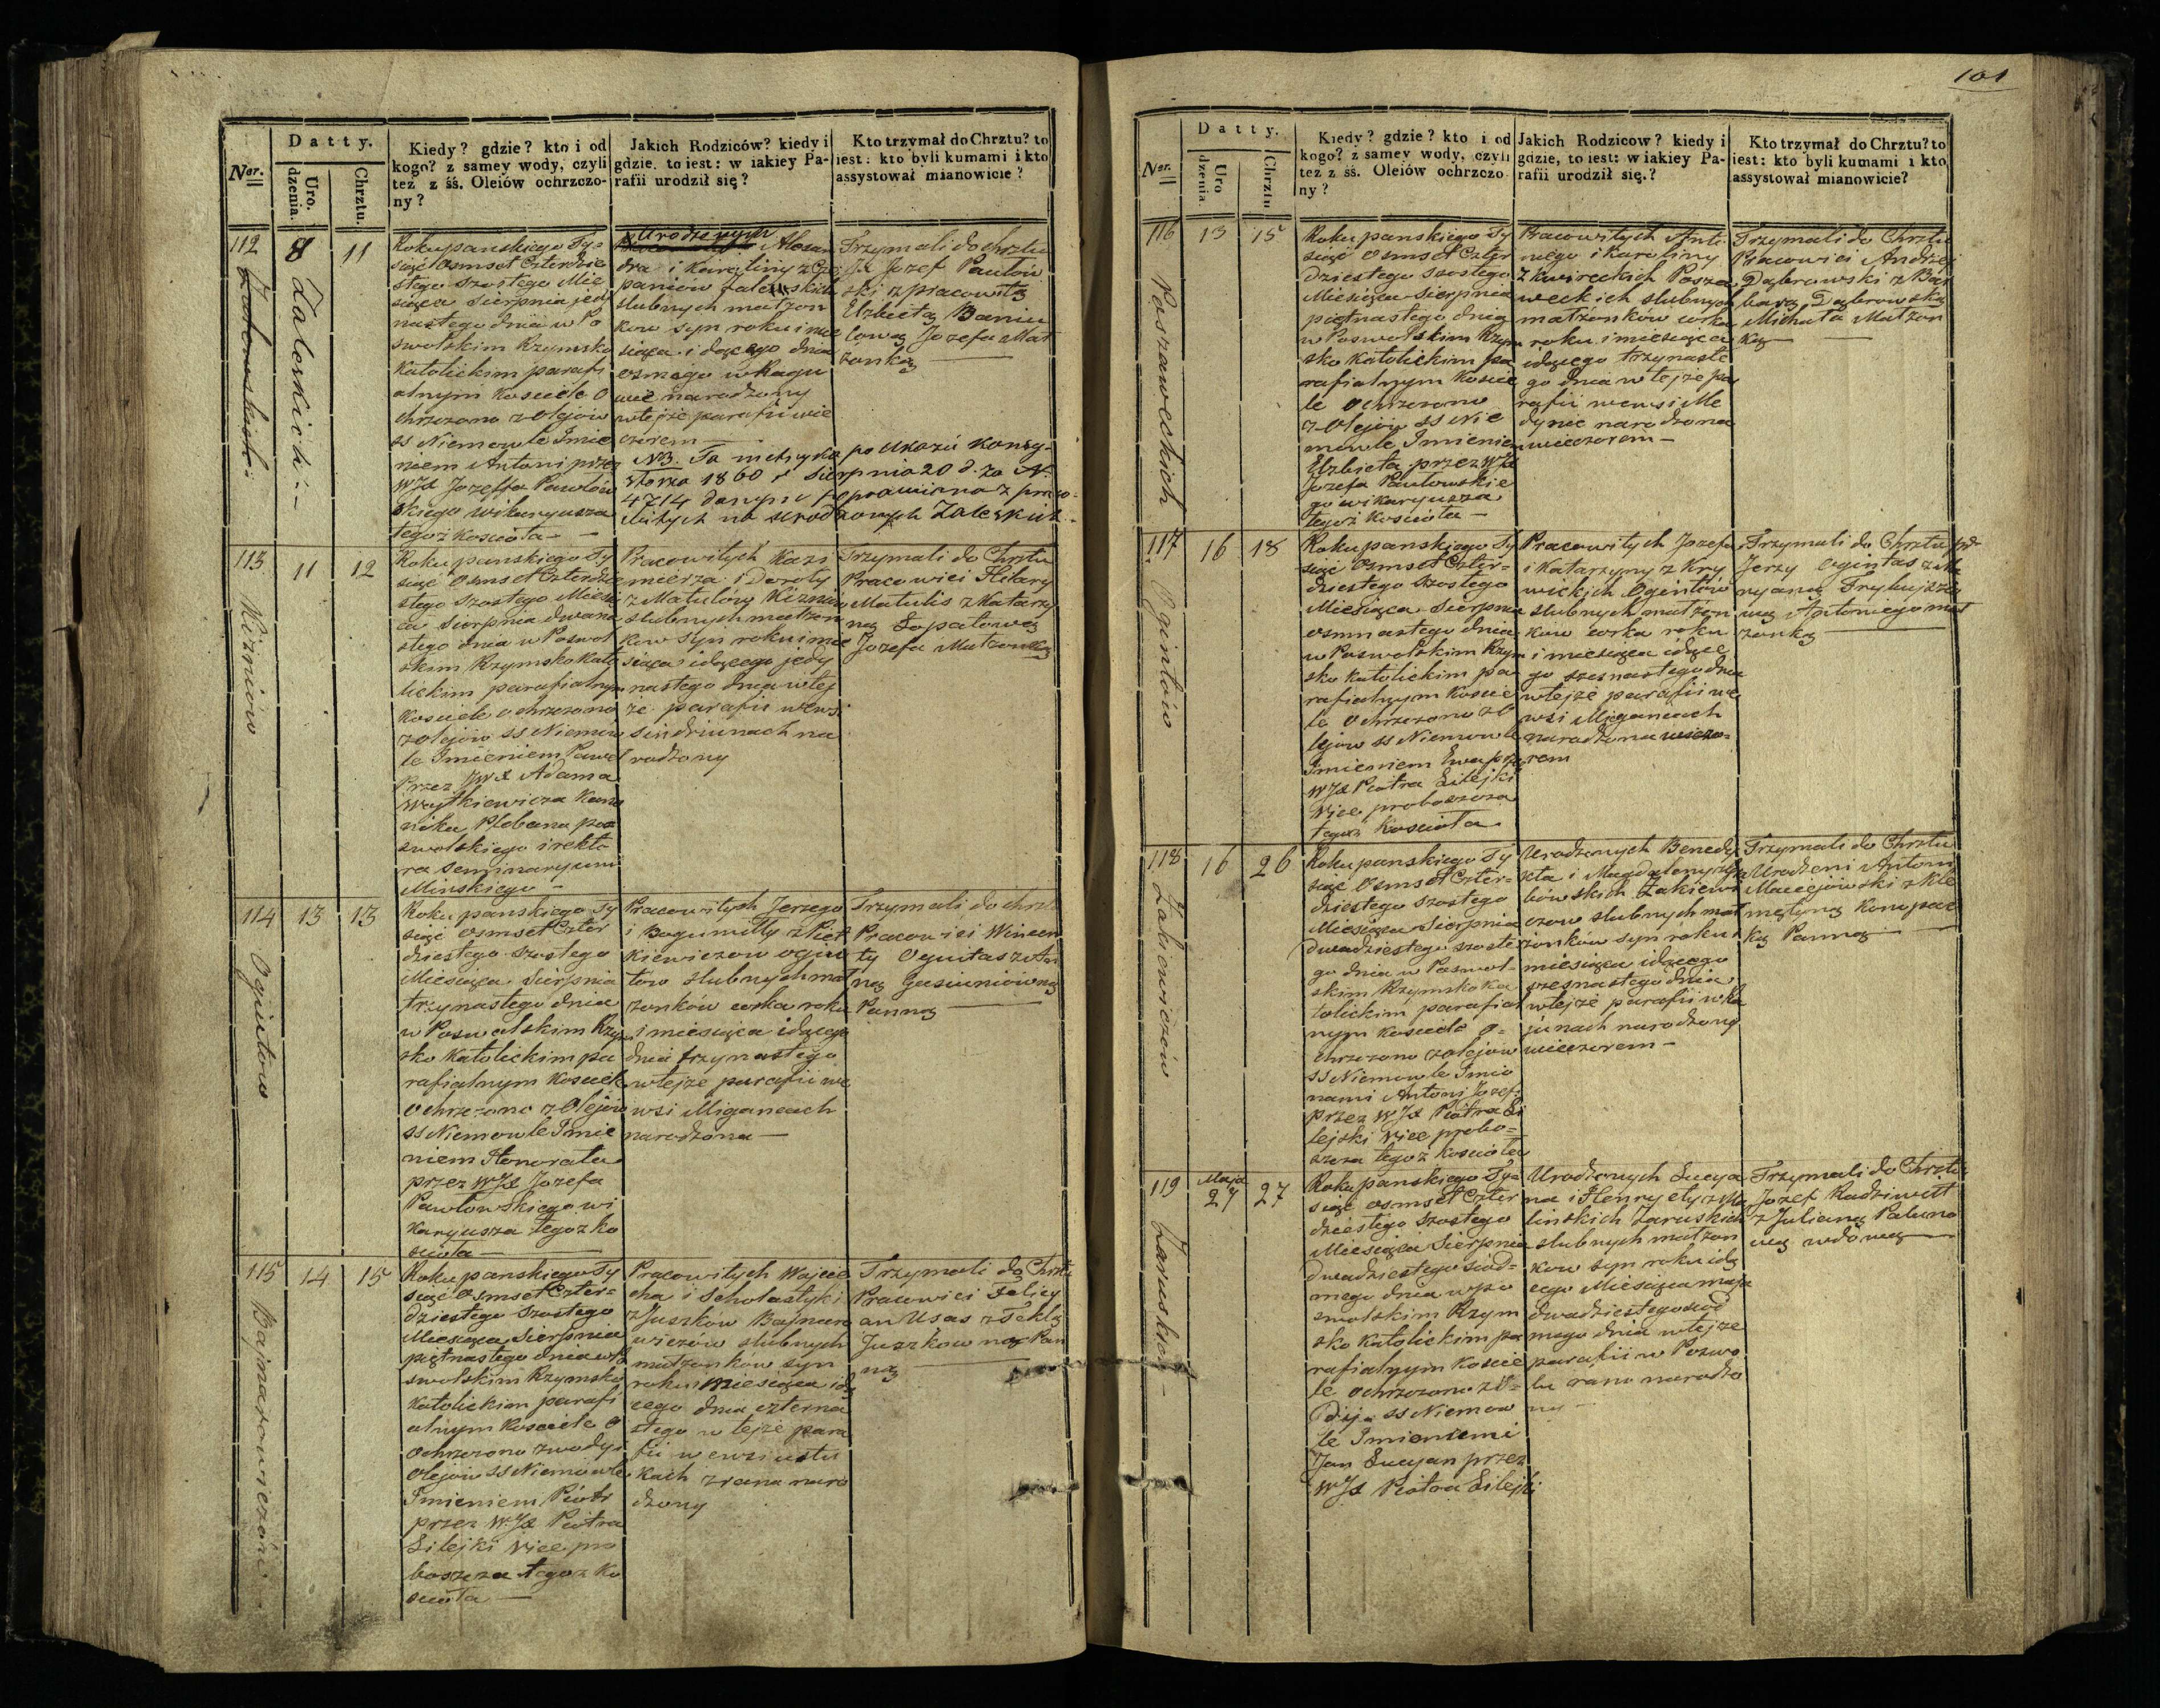 101
Datty.
Ner.
Uro.
dzenia.
Chrztu.
Kiedy? gdzie? kto i od
kogo? z samey wody, czyli
tez z śś. Oleiów ochrzczo-
ny?
Jakich Rodziców? kiedy i
gdzie, to iest: w iakiey Pa-
rafii urodził się?
Kto trzymał do Chrztu? to
iest: kto byli kumami i kto
assystował mianowicie?
112
8
11
Zaleskich
Roku panskiego Ty-
siąc Osmset Czterdzie
stego szostego Mie
siąca Sierpnia jedy
nastego dnia w Po
swolskim Rzymsko
Katolickim parafi
alnym Kosciele o
chrzczono z Olejow
SS Niemowle Imie
niem Antoni przez
WJX Jozeffa Pawłow
skiego wikaryusza
tegoż Koscioła
Urodzonych Alexan
dra i Karoliny z
slubnych małżon
kow syn roku i mie
siąca idącego dnia
osmego w
narodzony
w tejże parafii wie
czorem
Trzymali do chrztu
JX Jozef Pawłow
ski z pracowitą
Elzbietą Baniu
lową Jozefa Mał
żonką
NB. Ta metryka po ukazu Konsy-
storza 1860 r Sierpnia 20 d. za N.
4714 danym poprawiona z praco-
witych na urodzonych Zaleskich
113
11
12
Kiżniow
Roku panskiego Ty
siąc Osmset Czterdzie
stego szostego Miesi
ąca Sierpnia dwuna
stego dnia w Poswol
skim Rzymsko Kato
lickim parafialnym
Kosciele ochrzczono
z olejow SS Niemow
le Imieniem Paweł
Przez JWX Adama
Woytkiewicza Kano
nika Plebana Po
swolskiego i rekto
ra Seminaryum
Minskiego
Pracowitych Kazi
mierza i Doroty
z Matulow Kizniow
slubnych małżon
kow syn roku i mie
siąca idącego jedy
nastego dnia w tej
że parafii w wsi
Sindriunach na
rodzony
Trzymali do Chrztu
Pracowici Hilary
Matulis z Katarzy
ną Łopatową
Jozefa Małżonką
114
13
13
Ogintow
Roku panskiego Ty
siąc Osmset Czter
dziestego szostego
Miesiąca Sierpnia
trzynastego dnia
w Poswolskim Rzym
sko Katolickim pa
rafialnym Kosciele
ochrzczono z Olejow
SS Niemowle Imie
niem Honorata
przez WJX Jozefa
Pawłowskiego wi
karyusza tegoż ko
scioła
Pracowitych Jerzego
i Bogumiłły z Piet
kiewiczow Ogin
tow slubnych mał
żonków corka roku
i miesiąca idącego
dnia trzynastego
w tejże parafii we
wsi Migancach
narodzona
Trzymali do chrztu
Pracowici Wincen
ty Ogintas z An
ną Gasiuniowną
Panną
115
14
15
Bajnarowiczów
Roku panskiego Ty
siąc Osmset Czter-
dziestego szostego
Miesiąca Sierpnia
piętnastego dnia w Po
swolskim Rzymsko
Katolickim parafi
alnym Kosciele o
ochrzczono z wody i
Olejow SS Niemowle
Imieniem Piotr
przez WJX Piotra
Lilejki vice pro
boszcza tegoż Ko
scioła
Pracowitych Wojcie
cha i Scholastyki
z Juszkow Bajnaro
wiczów slubnych
małżonków syn
roku i miesiąca idą
cego dnia czterna
stego w tejże para
fii w wsi
kach z rana naro
dzony
Trzymali do Chrztu
Pracowici Felicy
an Usas z Teklą
Juszkowną Pan
ną
Datty.
Ner.
Uro
dzenia
Chrztu
Kiedy? gdzie? kto i od
kogo? z samey wody, czyli
tez z śś. Oleiów ochrzczo
ny?
Jakich Rodzicow? kiedy i
gdzie, to iest: w iakiey Pa-
rafii urodził się.?
Kto trzymał do Chrztu? to
iest: kto byli kumami i kto
assystował mianowicie?
116
13
15
Paszaweckich
Roku panskiego Ty
siąc Osmset Czter
dziestego szostego
Miesiąca Sierpnia
piętnastego dnia
w Poswolskim Rzym
sko Katolickim pa
rafialnym Koscie
le ochrzczono
z Olejow SS Nie
mowle Imieniem
Elzbieta przez WJX
Jozefa Pawłowskie
go wikaryusza
tegoż Koscioła
Pracowitych Anto
niego i Karoliny
z Kwireckich Pasza
weckich slubnych
małżonków corka
roku i miesiąca
idącego trzynaste
go dnia w tejże pa
rafii w wsi Me
dynce narodzona
wieczorem
Trzymali do Chrztu
Pracowici Andrzej
Dąbrowski z Bar
barą Dąbrowską
Michała Małżon
ką
117
16
18
Ogintów
Roku panskiego Ty
siąc Osmset Czter-
dziestego szostego
Miesiąca Sierpnia
osmnastego dnia
w Poswolskim Rzym
sko Katolickim pa
rafialnym Koscie
le ochrzczono z O
lejow SS Niemowle
Imieniem Ewa prz
WJX Piotra Lilejki
vice proboszcza
tegoż Koscioła
Pracowitych Jozefa
i Katarzyny z Kry
wickich Ogintów
slubnych małżon
ków corka roku
i miesiąca idące
go szesnastego dnia
w tejże parafii we
wsi Migancach
narodzona wieczo-
rem
Trzymali do Chrztu
Jerzy Ogintas z Ma
ryanną
Antoniego mał
żonką
118
16
26
Żakiewiczów
Roku panskiego Ty
siąc Osmset Czter-
dziestego szostego
Miesiąca Sierpnia
dwudziestego szoste
go dnia w Poswol-
skim Rzymsko Ka
tolickim parafial
nym Kosciele o-
chrzczono z olejow
SS Niemowle Imio
nami Antoni Jozef
przez WJX Piotra Li
lejki vice probo-
szcza tegoż Koscioła
Urodzonych Benedy
kta i Magdaleny
bowskich Żakiewi
czow slubnych mał
żonków syn roku i
miesiąca idącego
szesnastego dnia
w tejże parafii w
junach narodzony
wieczorem
Trzymali do Chrztu
Urodzeni Antoni
Maciejowski z Kle
mentyną
Panną
119
Maja
27
27
Zaruskich
Roku panskiego Ty-
siąc osmset Czter
dziestego szostego
Miesiąca Sierpnia
dwudziestego siod-
mego dnia w Po
swolskim Rzym
sko Katolickim pa
rafialnym Koscie
le ochrzczono z O-
SS Niemow
le Imieniemi
Jan Lucyan przez
WJX Piotra Lilejki
Urodzonych Lucya
na i Henryety z Ma
linskich Zaruskich
slubnych małżon
kow syn roku idą
cego Miesiąca maja
dwudziestego siod
mego dnia w tejże
parafii w Poswo
lu rano narodzo
ny
Trzymali do Chrztu
Jozef Radziwiłł
z Julianną
wdową